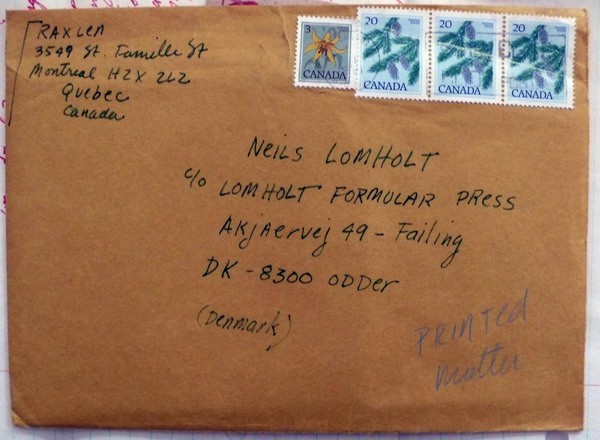 RAXLEN
3549 St. Famille St
Montreal H2X 2L2
Quebec
Canada
3
CANADA
20
CANADA
20
CANADA
20
CANADA
Neils LOMHOLT
c/o LOMHOLT FORMULAR PRESS
Akjaervej 49 - Failing
DK - 8300 ODDer
(Denmark)
PRINTED
matter